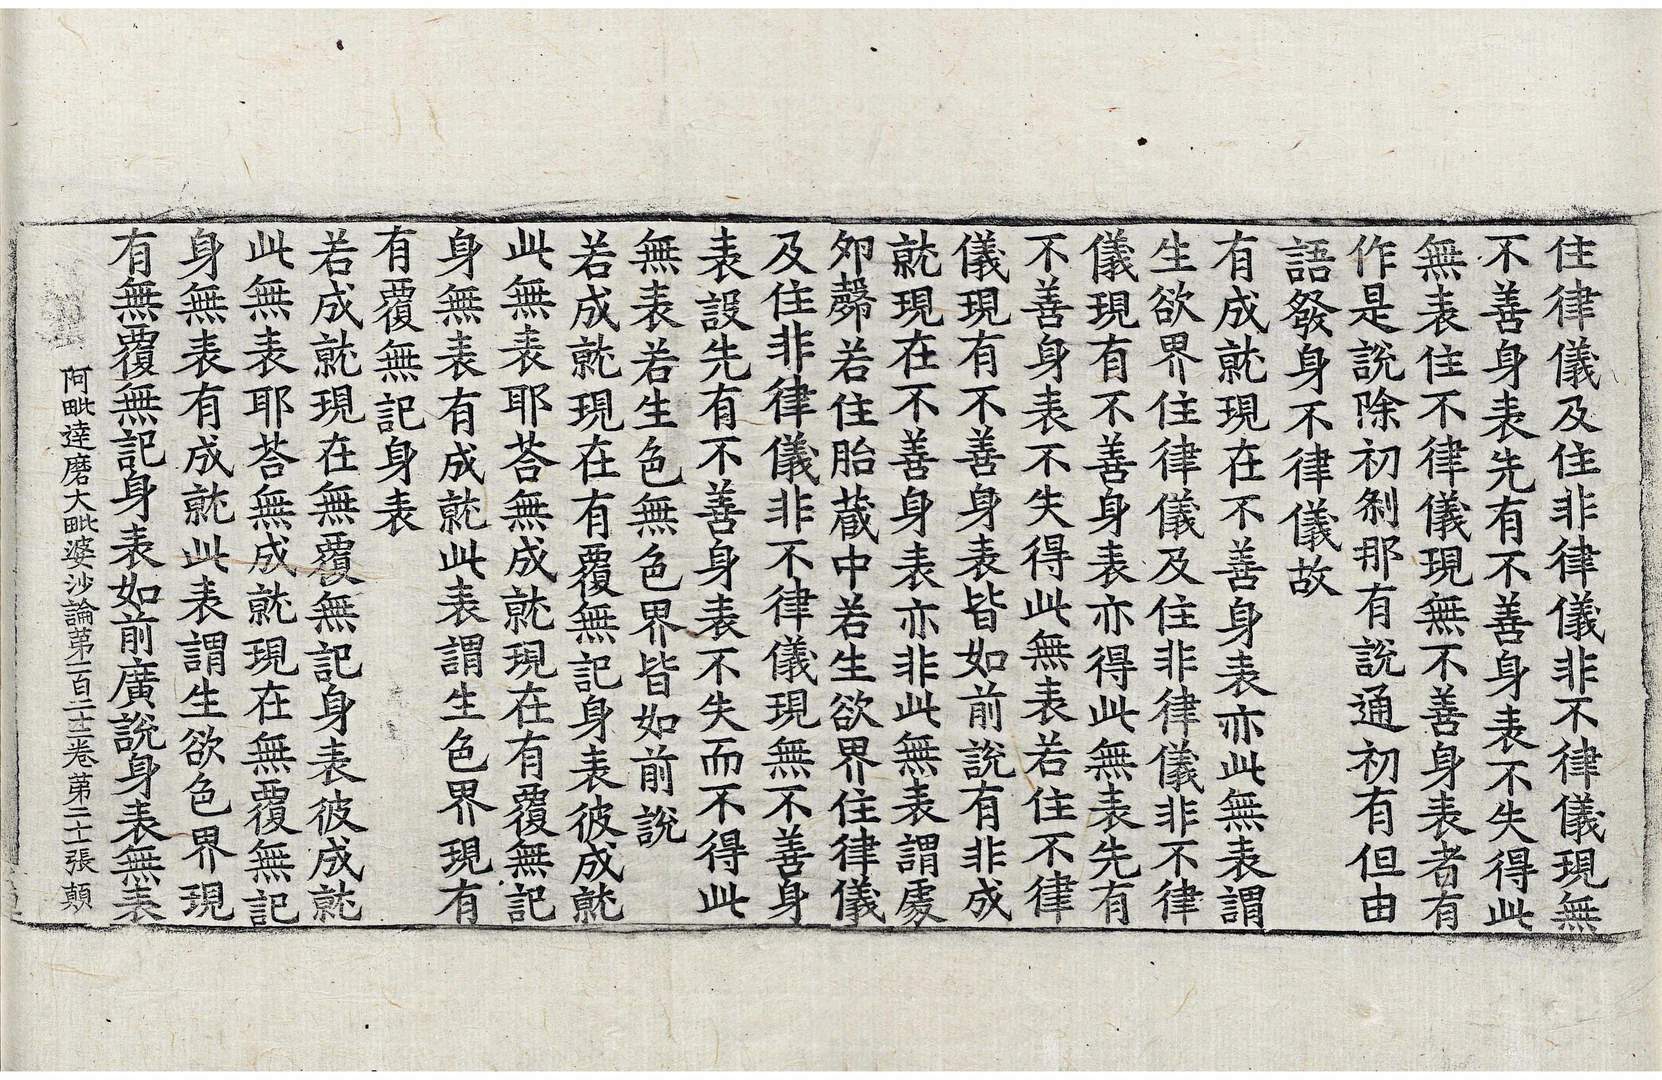 住律儀及住非律儀非不律儀現無
不善身表先有不善身表不失得此
無表住不律儀現無不善身表者有
作是說除初剎那有說通初有但由
語發身不律儀故
有成就現在不善身表亦此無表謂
生欲界住律儀及住非律儀非不律
儀現有不善身表亦得此無表先有
不善身表不失得此無表若住不律
儀現有不善身表皆如前說有非成
就現在不善身表亦非此無表謂處
夘㲉若住胎藏中若生欲界住律儀
及住非律儀非不律儀現無不善身
表設先有不善身表不失而不得此
無表若生色無色界皆如前說
若成就現在有覆無記身表彼成就
此無表耶荅無成就現在有覆無記
身無表有成就此表謂生色界現有
有覆無記身表
若成就現在無覆無記身表彼成就
此無表耶荅無成就現在無覆無記
身無表有成就此表謂生欲色界現
有無覆無記身表如前廣說身表無表
阿毗達磨大毗婆沙論第一百二十二卷第二十一張顛